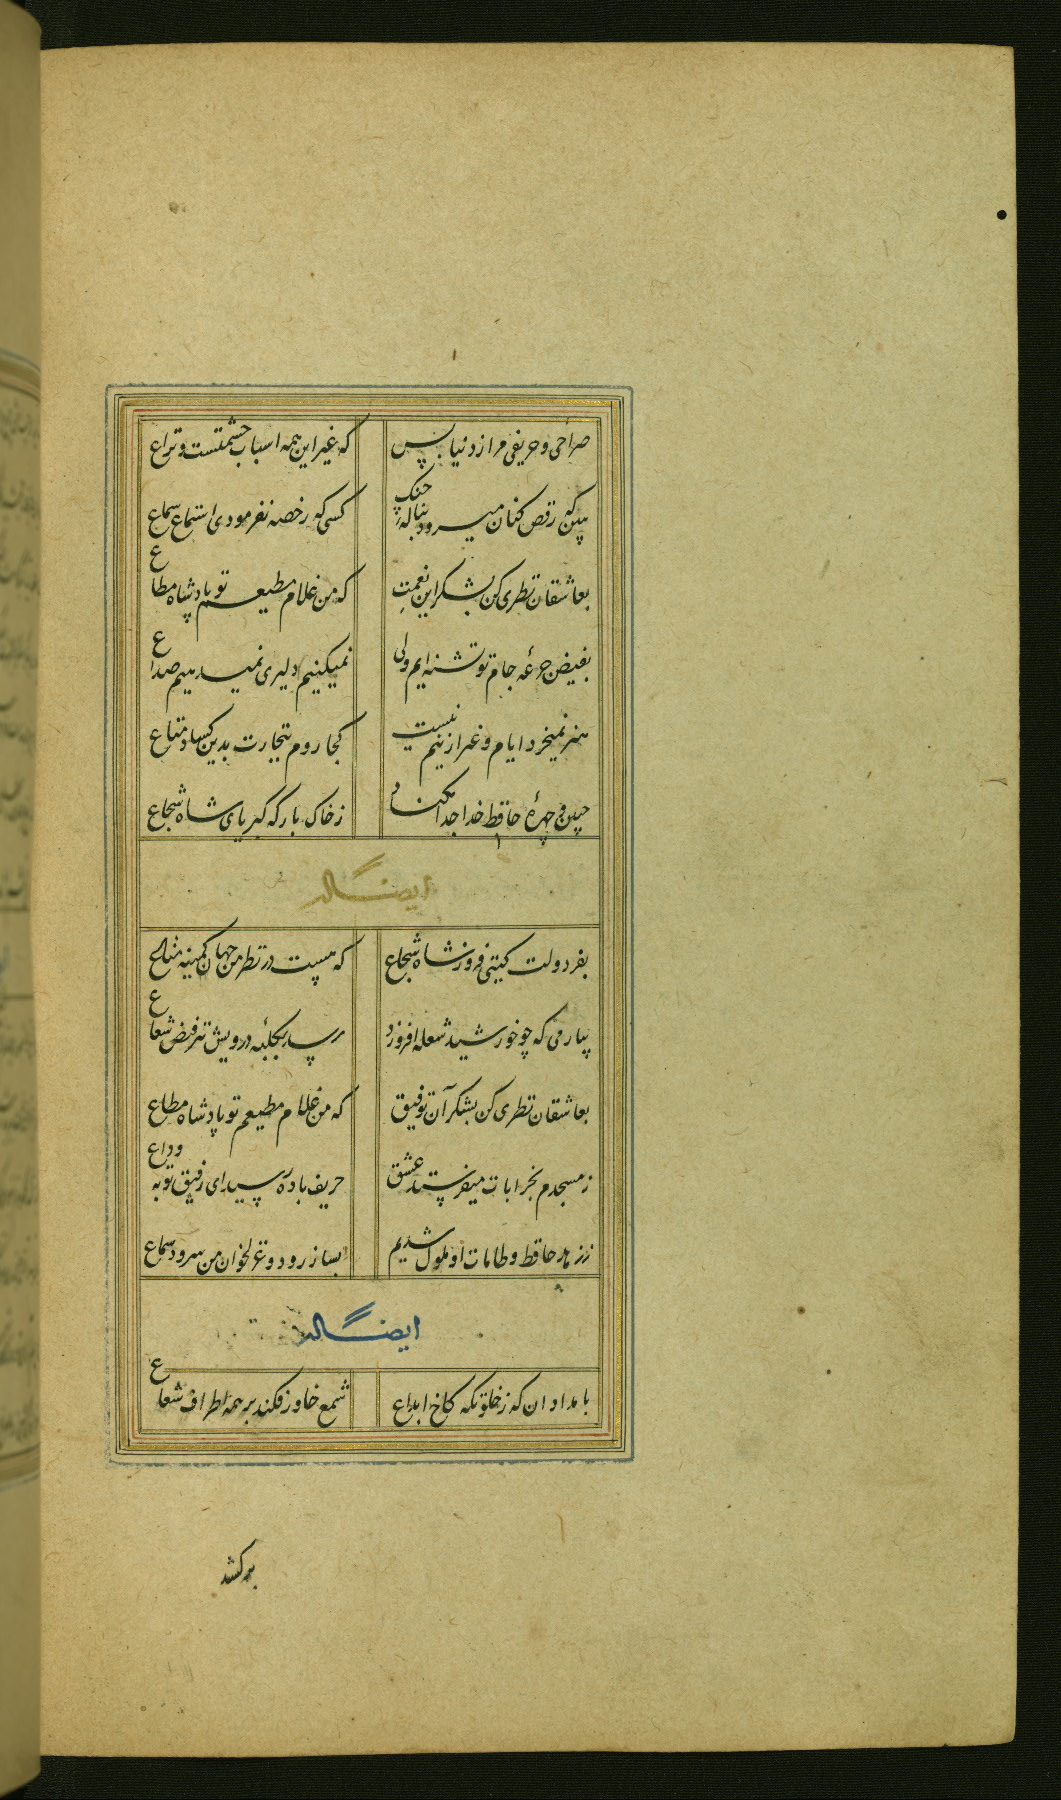 صراحی و حریفی مرا ز دنیا بس که غیر این همه اسباب حشمتست و نزاع
ببین که رقص کنان میرود بنالهٔ چنک کسی که رخصه نفرمودی استماع سماع
بعاشقان نظری کن بشکر این نعمت که من غلام مطیعم تو پادشاه مطاع
بفیض جرعهٔ جام تو تشنه ایم ولی نمیکنیم دلیری نمیدهیم صداع
هنر نمیخرد ایام و غیر ازینم نیست کجا روم بتجارت بدین کساد متاع
جبین و چهرهٔ حافظ خدا جدا مکناد ز خاک بارکه کبریای شاه شجاع
ایضاً له
بفر دولت کیتی فروز شاه شجاع که هست در نظر من جهان کمینه متاع
بیار می که چو خورشید شعله افروزد رسد بکلبهٔ درویش نیز فیض شعاع
بعاشقان نظری کن بشکر آن توفیق که من غلام مطیعم تو پادشاه مطاع
ز مسجدم بخرابات میفرستد عشق حریف باده رسید ای رفیق توبه وداع
ز زهد حافظ و طامات او ملول شدیم بساز رود و غزلخوان من سرود سماع
ایضاً له
بامدادان که ز خلوتکه کاخ ابداع شمع خاور فکند بر همه اطراف شعاع
برکشد